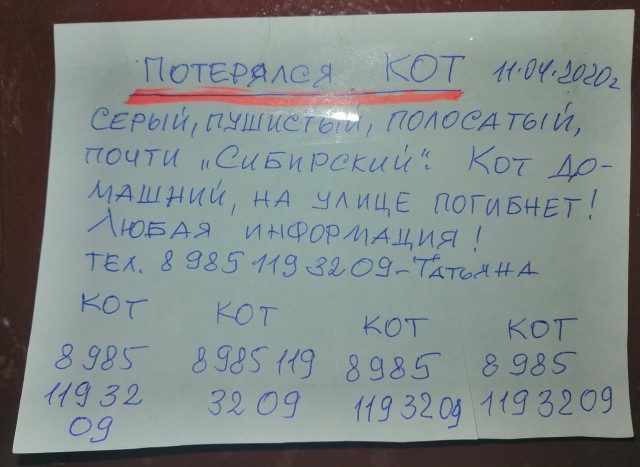 ПОТЕРЯЛСЯ КОТ 11.04.2020г
СЕРЫЙ, ПУШИСТЫЙ, ПОЛОСАТЫЙ,
ПОЧТИ „СИБИРСКИЙ“. КОТ ДО-
МАШНИЙ, НА УЛИЦЕ ПОГИБНЕТ!
ЛЮБАЯ ИНФОРМАЦИЯ!
ТЕЛ. 8 985 119 32 09-ТАТЬЯНА
КОТ
8 985
119 32
09
КОТ
8 985 119
32 09
КОТ
8 985
119 32 09
КОТ
8 985
119 32 09